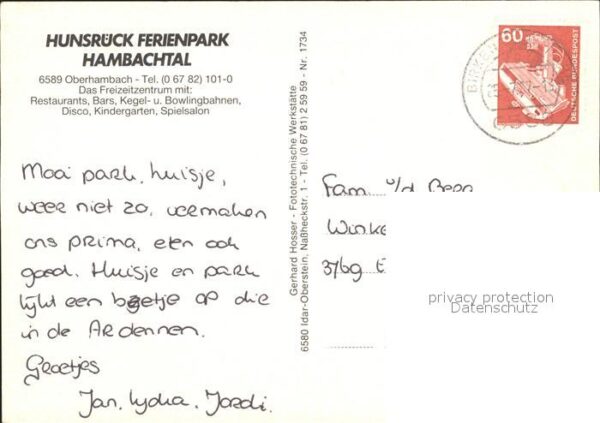 HUNSRÜCK FERIENPARK
HAMBACHTAL
6589 Oberhambach - Tel. (0 67 82) 101-0
Das Freizeitzentrum mit:
Restaurants, Bars, Kegel- u. Bowlingbahnen,
Disco, Kindergarten, Spielsalon
Mooi park, huisje,
weer niet zo, vermaken
ons prima, eten ook
goed. Huisje en park
lijkt een beetje op die
in de Ardennen.
Groetjes
Jan, Lydia, Jordi.
Gerhard Hosser - Fototechnische Werkstätte
6580 Idar-Oberstein, Naßheckstr. 1 - Tel. (0 67 81) 2 59 59 - Nr. 1734
60
DEUTSCHE BUNDESPOST
Fam. v/d Berg
Winke
3769 E
privacy protection
Datenschutz